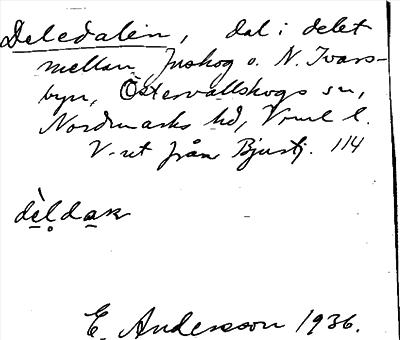 Deledalen, dal i delet
mellan Juskog o. N. Ivars-
byn, Östervallskogs sn,
Nordmarks hd, Vrml l.
V-ut från Bjustj. 114
dèldaɴ
E. Andersson 1936.